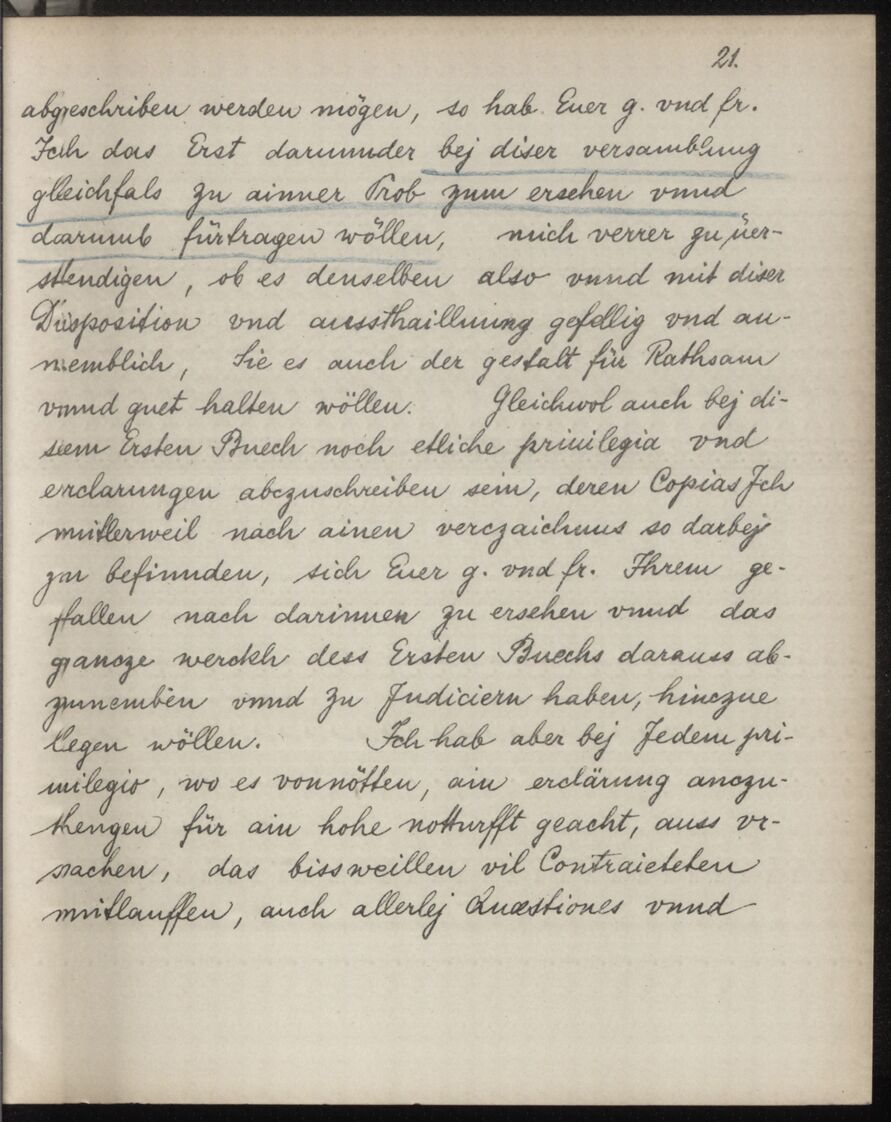 21.
abgeschriben werden mögen, so hab Euer g. vnd fr.
Ich das Erst darunnder bej diser versamblung
gleichfals zu ainner Prob zum ersehen vnnd
darumb fürtragen wöllen, mich verrer zu uer-
stendigen, ob es denselben also vnnd mit diser
Disposition vnd aussthaillnung gefellig vnd an-
nemblich, Sie es auch der gestalt für Rathsam
vnnd guet halten wöllen. Gleichwol auch bej di-
sem Ersten Buech noch etliche priuilegia vnd
erclarungen abczuschreiben sein, deren Copias Ich
mitlerweil nach ainen verczaichnus so darbej
zu befinnden, sich Euer g. vnd fr. Ihrem ge-
fallen nach darinnen zu ersehen vnnd das
gancze werckh dess Ersten Buechs darauss ab-
zunemben vnnd zu Judiciern haben, hinczue
legen wöllen. Ich hab aber bej Jedem pri-
uilegio, wo es vonnötten, ain erclärung anczu-
hengen für ain hohe notturfft geacht, auss vr-
sachen, das bissweillen vil Contraieteten
mitlauffen, auch allerlej Quæstiones vnnd